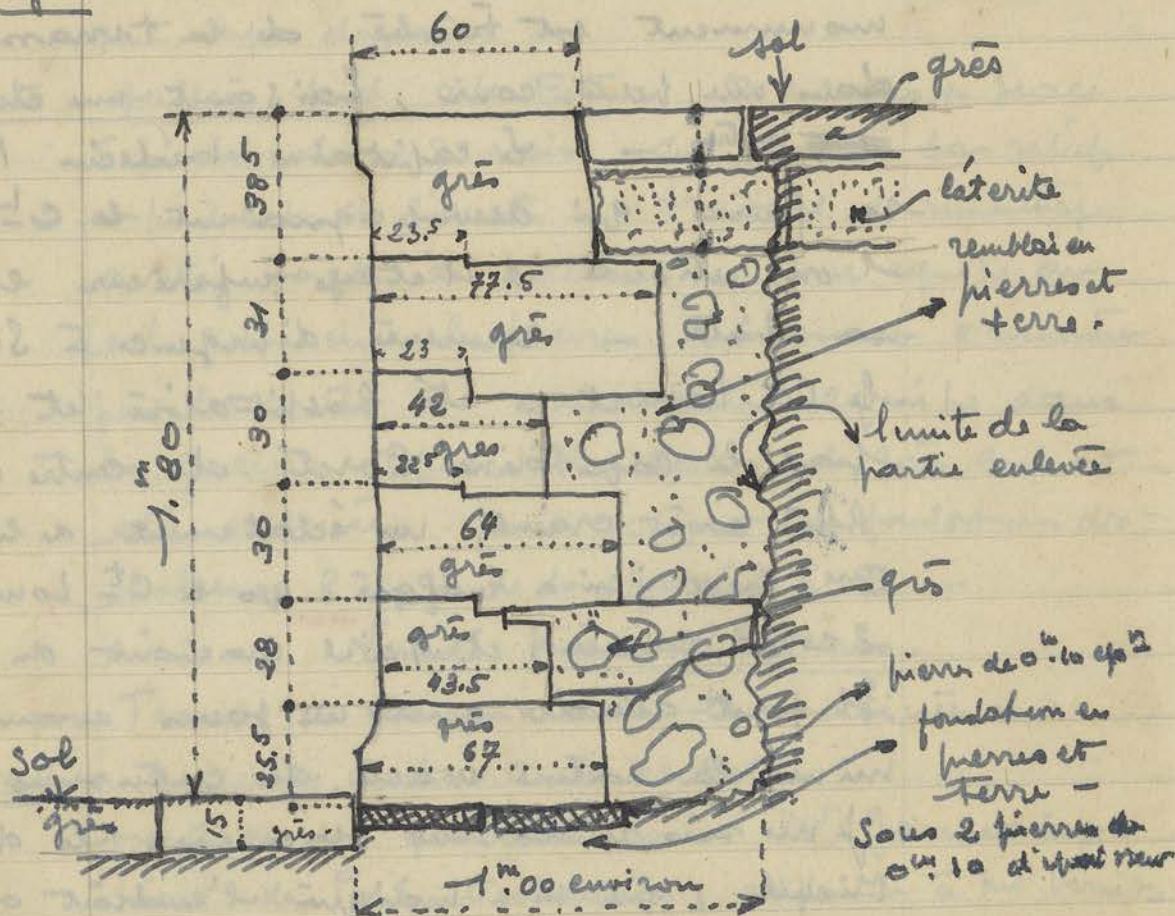 60
sol
grès
grès
38.5
23.5
latérite
remblai en
pierres et
terre.
77.5
31
grès
23
42
30
grès
22.5
limite de la
partie enlevée
1.m80
64
30
grès
grès
grès
28
43.5
pierres de 0m.10 epr
fondation en
pierres et
terre -
grès
67
25.5
sol
grès
15
grès.
Sous 2 pierres de
0m.10 d'épaisseur
1m.00 environ